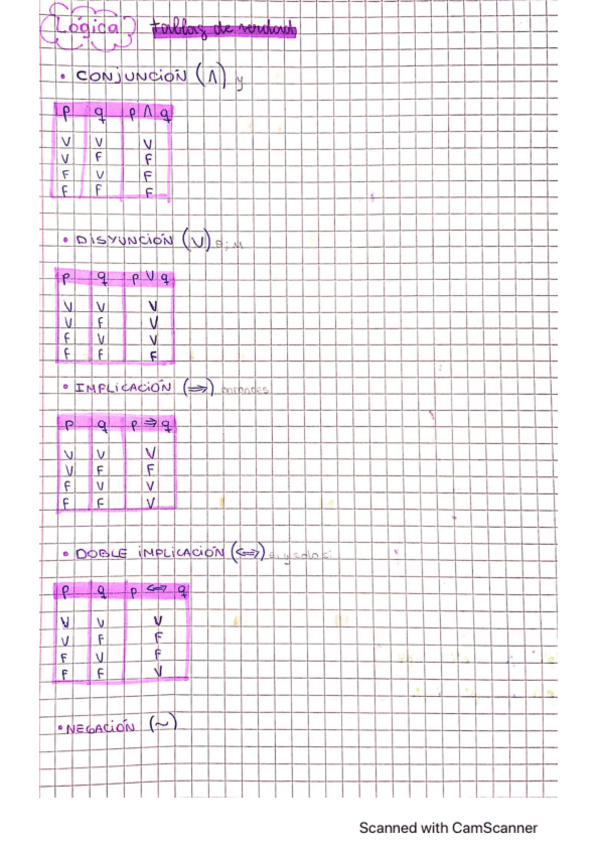 Lógica Tablas de verdad
• CONJUNCIÓN (∧) y
p q p ∧ q
V V V
V F F
F V F
F F F
• DISYUNCIÓN (∨)
p q p ∨ q
V V V
V F V
F V V
F F F
• IMPLICACIÓN (⇒) entonces
p q p ⇒ q
V V V
V F F
F V V
F F V
• DOBLE IMPLICACIÓN (⇔) si y solo si
p q p ⇔ q
V V V
V F F
F V F
F F V
• NEGACIÓN (~)
Scanned with CamScanner